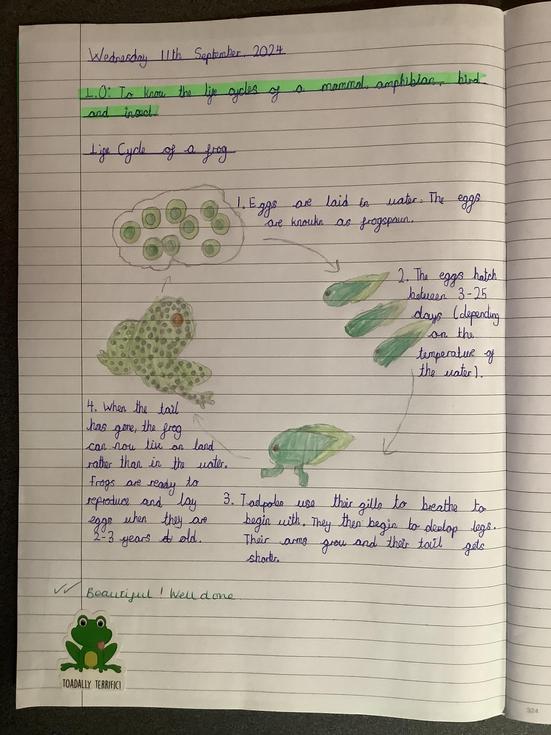 Wednesday 11th September 2024
L.O: To know the life cycles of a mammal, amphibian, bird
and insect
Life Cycle of a frog
1. Eggs are laid in water. The eggs
are known as frogspawn.
2. The eggs hatch
between 3-25
days (depending
on the
temperature of
the water).
4. When the tail
has gone, the frog
can now live on land
rather than in the water.
Frogs are ready to
reproduce and lay
eggs when they are
2-3 years old.
3. Tadpoles use their gills to breathe to
begin with. They then begin to devlop legs.
Their arms grow and their tail gets
shorter.
Beautiful! Well done.
TOADALLY TERRIFIC!
324